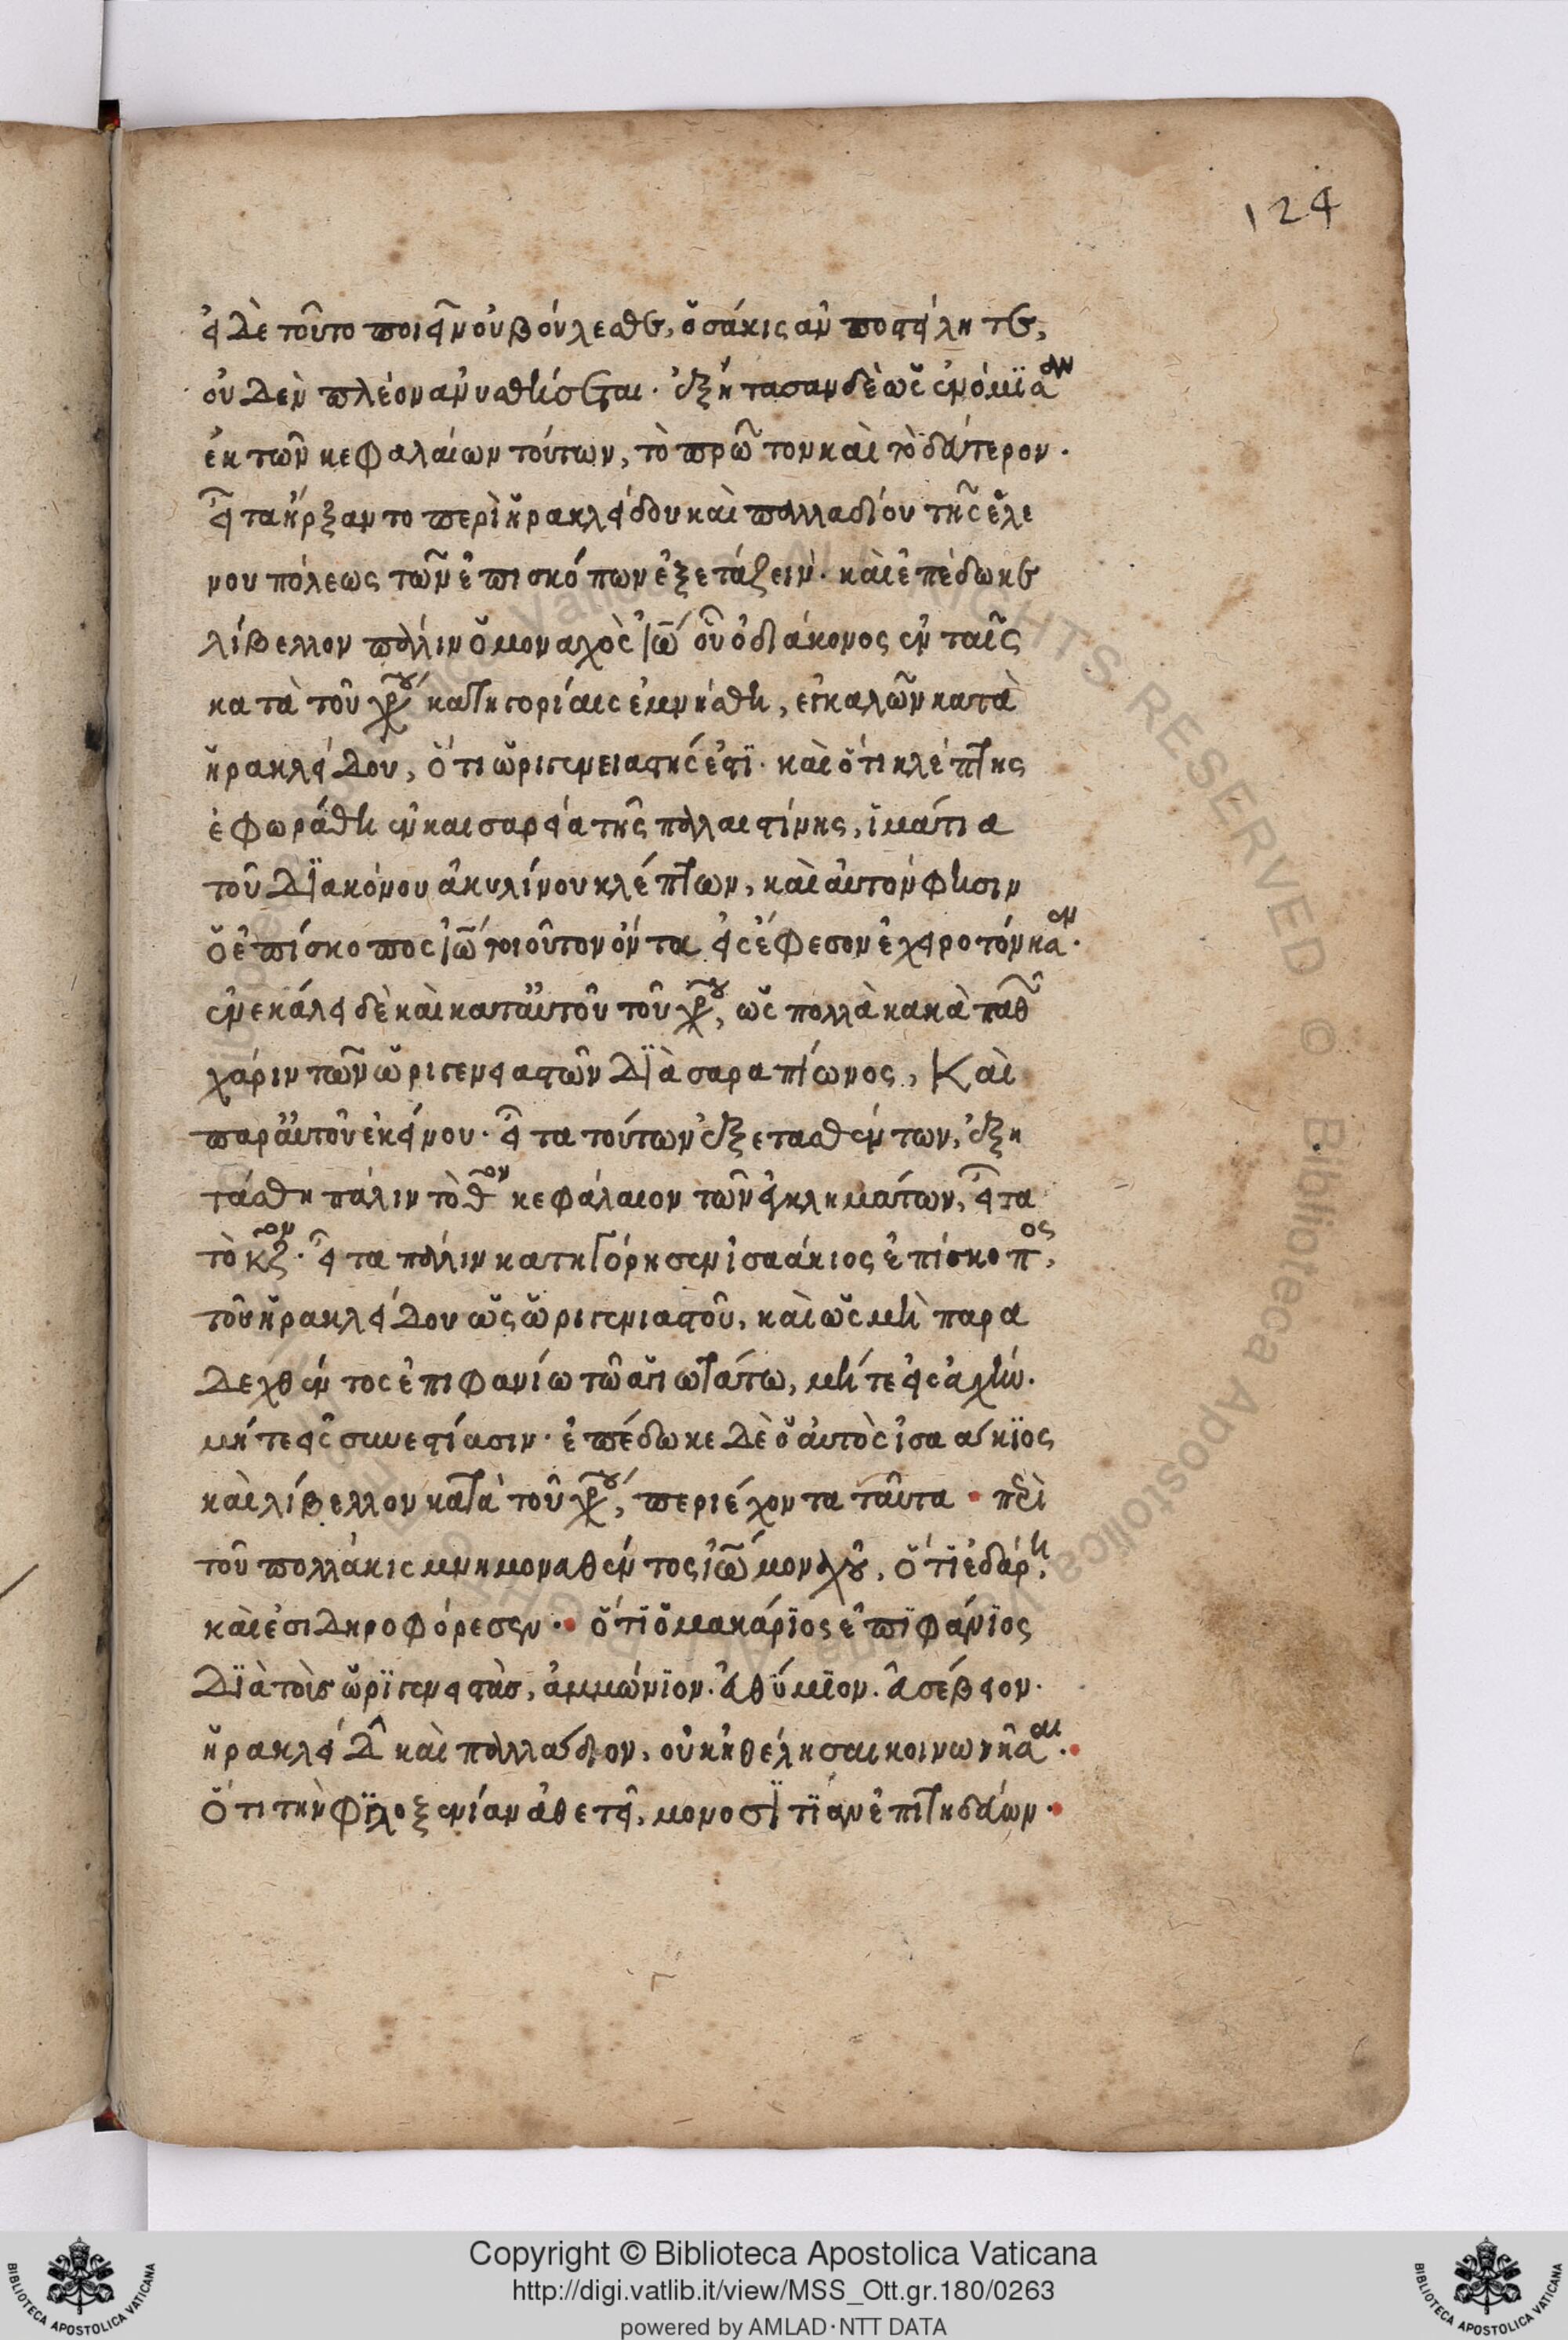 124
εἰ δὲ τοῦτο ποιεῖν οὐ βούλεσθε, ὁσάκις ἂν ποστείλητε,
οὐδὲν πλέον ἀνυσθήσεται. ἐξήτασαν δὲ ὡς ἐνόμισαν
ἐκ τῶν κεφαλαίων τούτων, τὸ πρῶτον καὶ τὸ δεύτερον.
εἶτα ἤρξαντο περὶ ἡρακλείδου καὶ παλλαδίου τῆς ἑλε
νουπόλεως τῶν ἐπισκόπων ἐξετάζειν. καὶ ἐπέδωκε
λίβελλον πάλιν ὁ μοναχὸς ἰω οὗ ὁ διάκονος ἐν ταῖς
κατὰ τοῦ χρυ κατηγορίαις ἐμνήσθη, ἐγκαλῶν κατὰ
ἡρακλείδου, ὅτι ὠριγενειαστής ἐστϊ. καὶ ὅτι κλέπτης
ἐφωράθη ἐν καισαρεία τῆς παλαιστίνης, ἱμάτια
τοῦ δϊακόνου ἀκυλίνου κλέπτων, καὶ αὐτόν φησιν
ὁ ἐπίσκοπος ἰω τοιοῦτον ὄντα εἰς ἔφεσον ἐχειροτόνησεν.
ἐνεκάλει δὲ καὶ κατ' αὐτοῦ τοῦ χρυ, ὡς πολλὰ κακὰ παθὼν
χάριν τῶν ὠριγενειαστῶν δϊὰ σαραπίωνος, Καὶ
παρ' αὐτοῦ ἐκείνου. εἶτα τούτων ἐξετασθέντων, ἐξη
τάσθη πάλιν τὸ θον κεφάλαιον τῶν ἐγκλημάτων, εἶτα
τὸ κζον. εἶτα πάλιν κατηγόρησεν ἰσαάκιος ἐπίσκοπος,
τοῦ ἡρακλείδου ὡς ὠριγενιαστοῦ, καὶ ὡς μὴ παρα
δεχθέντος ἐπιφανίω τῶ ἁγιωτάτω, μήτε εἰς εὐχὴν.
μήτε εἰς συνεστίασιν. ἐπέδωκε δὲ ὁ αὐτὸς ἰσαάκϊος
καὶ λίβελλον κατὰ τοῦ χρυ, περιέχοντα ταῦτα · περὶ
τοῦ πολλάκις μνημονευθέντος ἰω μοναχοῦ, ὅτϊ ἐδάρη,
καὶ ἐσιδηροφόρεσεν · ὅτϊ ὁ μακάρϊος ἐπϊφάνϊος
δϊὰ τοὺς ὠρϊγενειστὰσ, ἀμμώνϊον. εὐθύμϊον. εὐσέβειον.
ἡρακλείδην καὶ παλλάδϊον, οὐκ ἠθέλησαι κοινωνῆσαι ·
Ὅτι τὴν φϊλοξενίαν ἀθετεῖ, μονοσϊτϊαν ἐπιτηδεύων ·
Copyright © Biblioteca Apostolica Vaticana
http://digi.vatlib.it/view/MSS_Ott.gr.180/0263
powered by AMLAD·NTT DATA